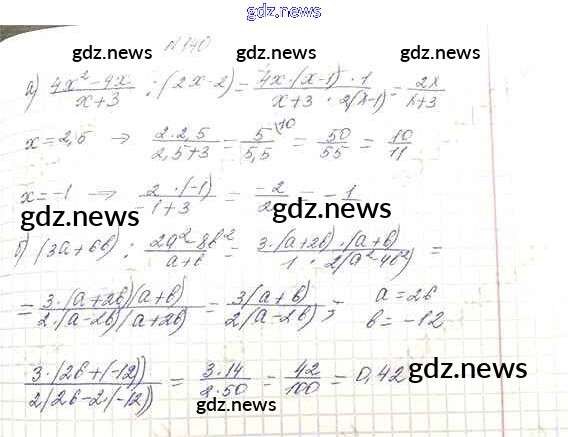 gdz.news
N 140
gdz.news gdz.news
а) (4x² - 4x)/(x+3) : (2x-2) = (4x·(x-1)·1)/(x+3·2(x-1)) = 2x/(x+3)
x = 2,5 → (2·2,5)/(2,5+3) = 5/5,5 \10 = 50/55 = 10/11
x = -1 → (2·(-1))/(-1+3) = -2/2 = -1
gdz.news gdz.news
б) (3a+6b) : (2a²-8b²)/(a+b) = (3·(a+2b)·(a+b))/(1·2(a²-4b²)) =
= (3·(a+2b)(a+b))/(2·(a-2b)(a+2b)) = (3(a+b))/(2(a-2b)); a = 26
b = -12
(3·(26+(-12)))/(2(26-2·(-12))) = (3·14)/(2·50) = 42/100 = 0,42
gdz.news
gdz.news